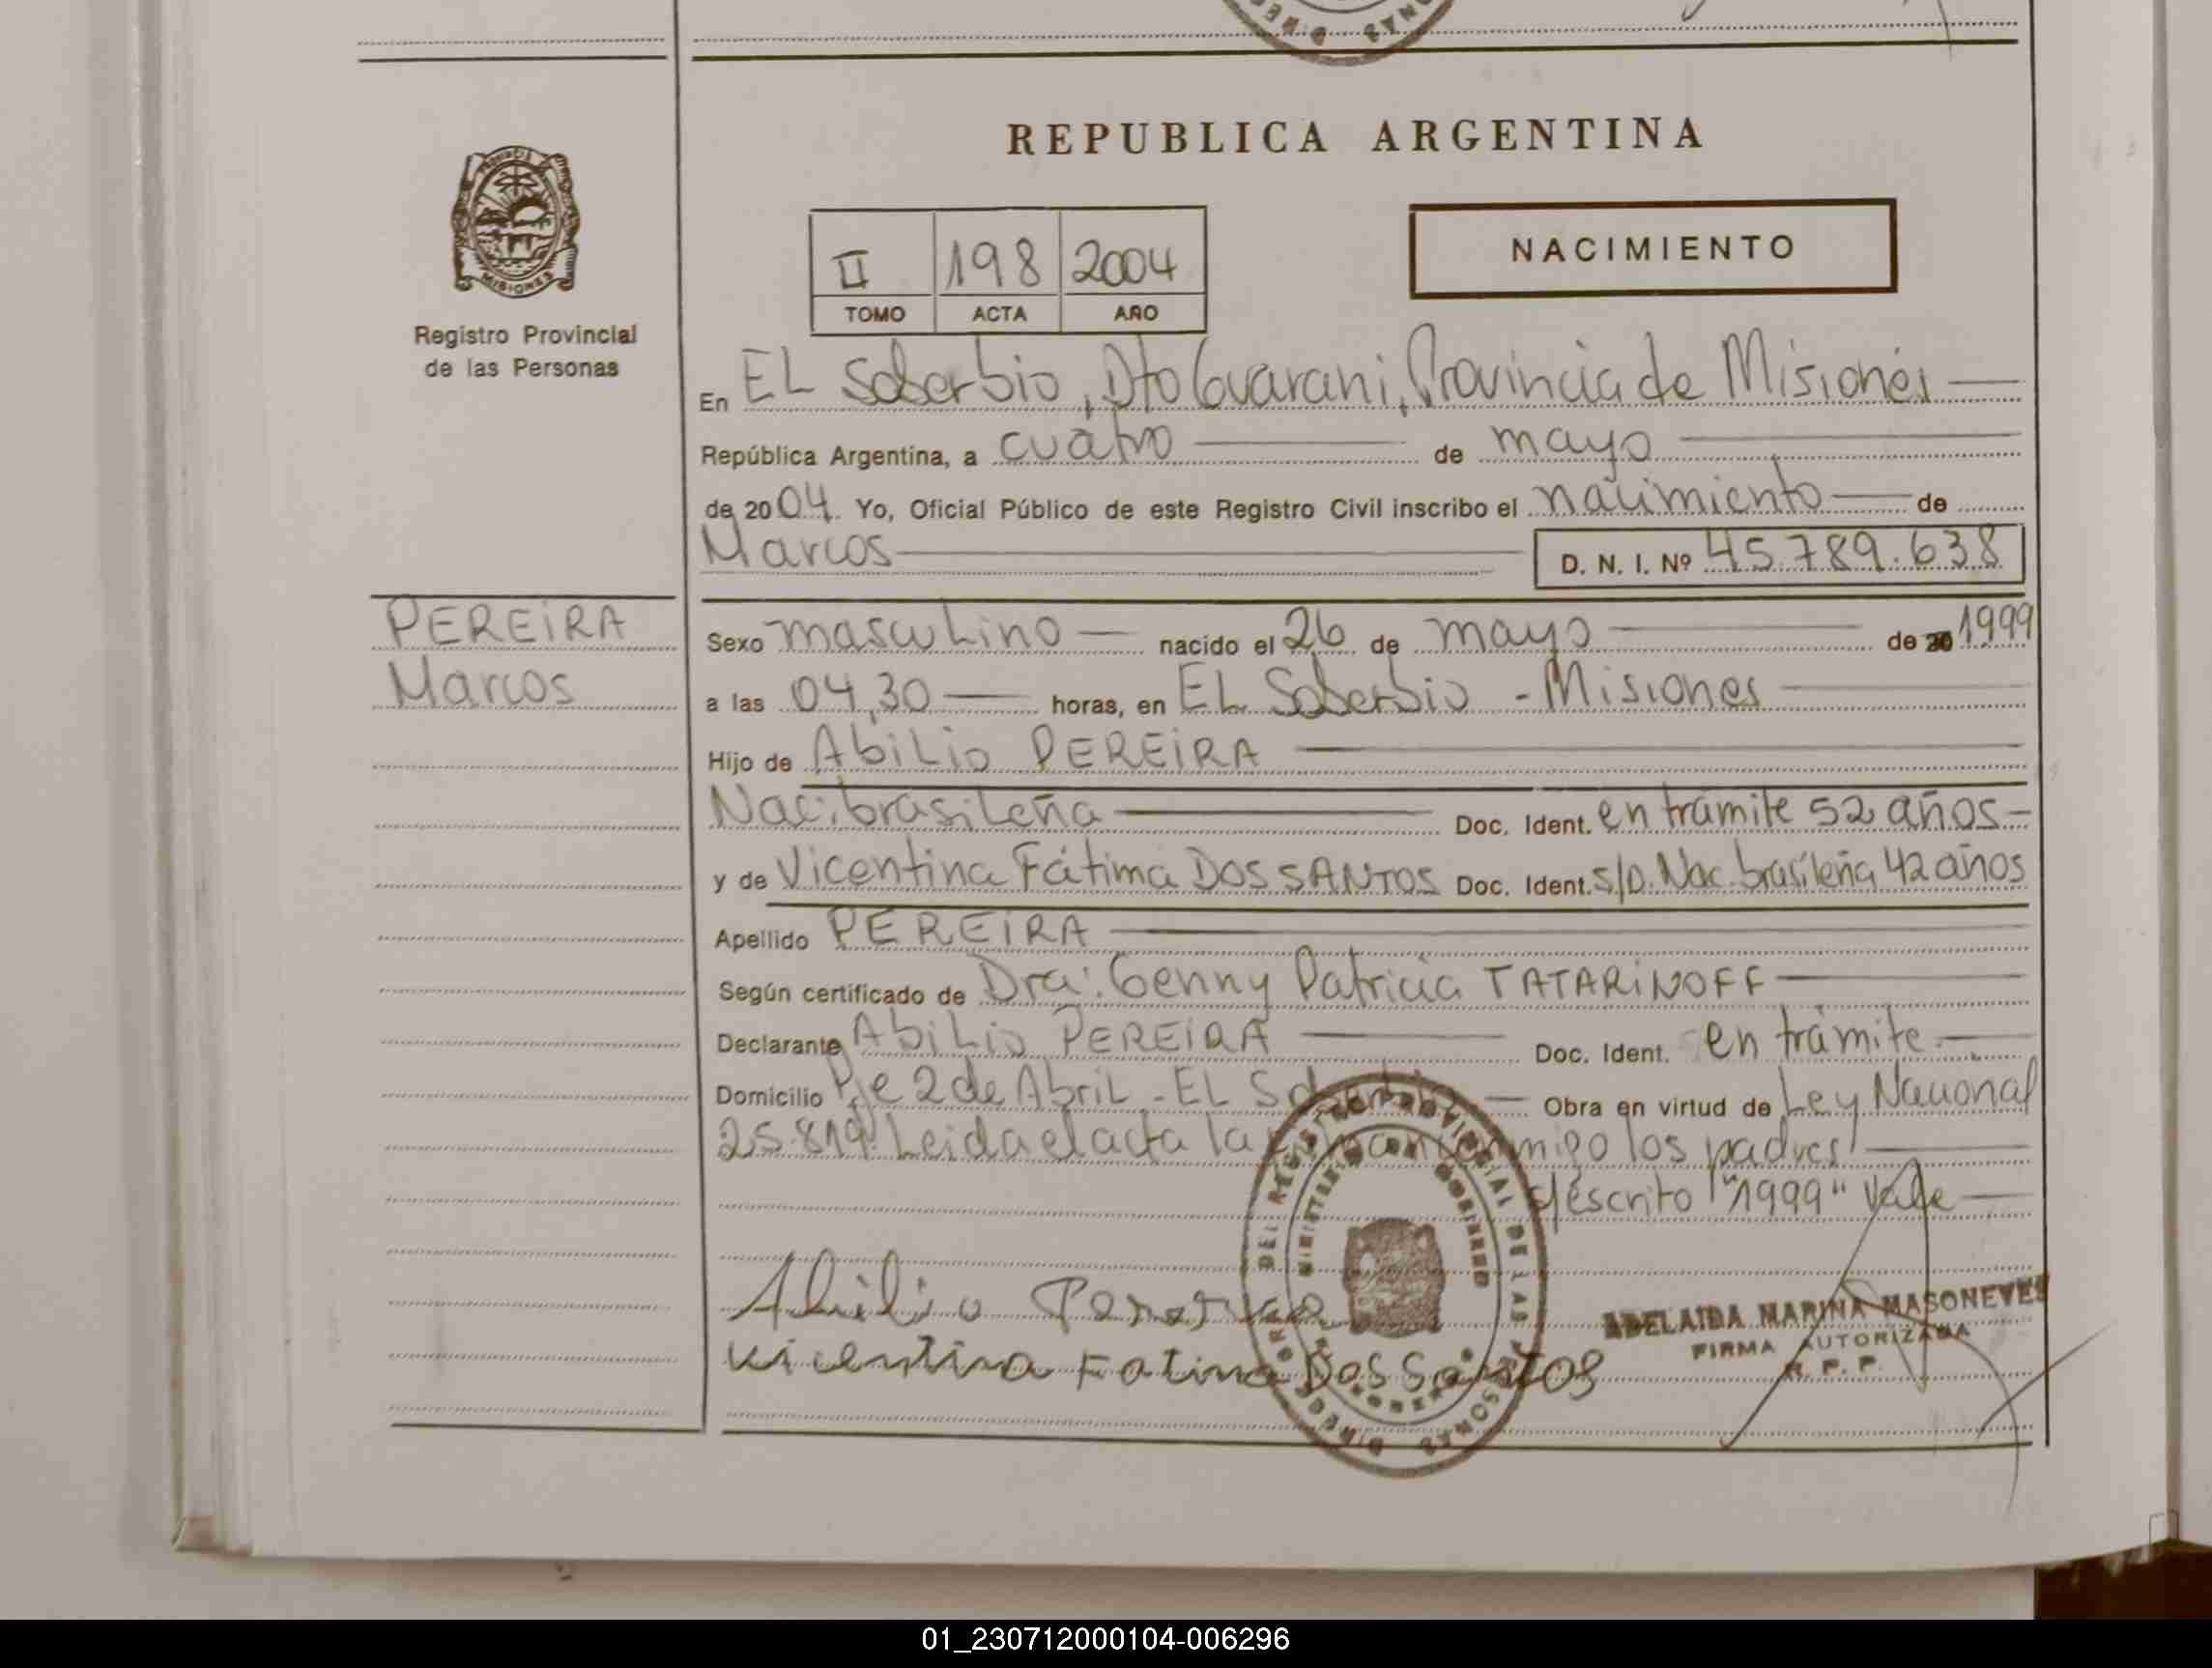 REPUBLICA ARGENTINA
MISIONES
Registro Provincial
de las Personas
II 198 2004
TOMO ACTA AÑO
NACIMIENTO
En EL Soberbio, Dto Guarani, Provincia de Misiones
República Argentina, a cuatro de mayo
de 2004. Yo, Oficial Público de este Registro Civil inscribo el nacimiento de
Marcos D. N. I. Nº 45.789.638
PEREIRA
Marcos
Sexo masculino nacido el 26 de mayo de 20 1999
a las 04,30 horas, en EL Soberbio - Misiones
Hijo de Abilio PEREIRA
Nac. brasileña Doc. Ident. en trámite 52 años
y de Vicentina Fátima DOS SANTOS Doc. Ident. s/D. Nac. brasileña 42 años
Apellido PEREIRA
Según certificado de Dra. Genny Patricia TATARINOFF
Declarante Abilio PEREIRA Doc. Ident. en trámite
Domicilio Pje 2 de Abril - EL Soberbio Obra en virtud de Ley Nacional
25.819. Leida el acta la firman conmigo los padres
"1999" Vale
Abilio Pereira
Vicentina Fatima Dos Santos
ADELAIDA MARINA MASONEVES
FIRMA AUTORIZADA
R. P. P.
01_230712000104-006296